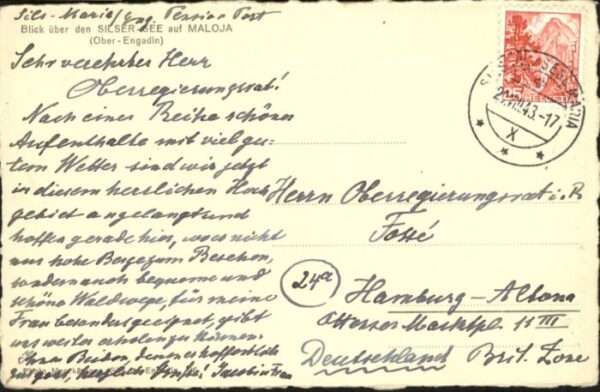 Sils-Maria/Eng. Pension Post
Blick über den SILSER-SEE auf MALOJA
(Ober-Engadin)
Sehr verehrter Herr
Oberregierungsrat!
Nach einer Reihe schöner
Aufenthalte mit viel gu-
tem Wetter sind wir jetzt
in diesem herrlichen Hoch
gebiet angelangt und
hoffen gerade hier, wo es nicht
nur hohe Berge zum Besehen,
sondern auch bequeme und
schöne Waldwege, für meine
Frau besonders geeignet, gibt
uns weiter erholen zu können.
Ihnen Beiden, denen es hoffentlich
gut geht, herzliche Grüße!
SILS-SEGL MARIA
43.-17
X
Herrn Oberregierungsrat i.R
Fossé
24a
Hamburg-Altona
Ottenser Marktpl. 11 III
Deutschland Brit. Zone